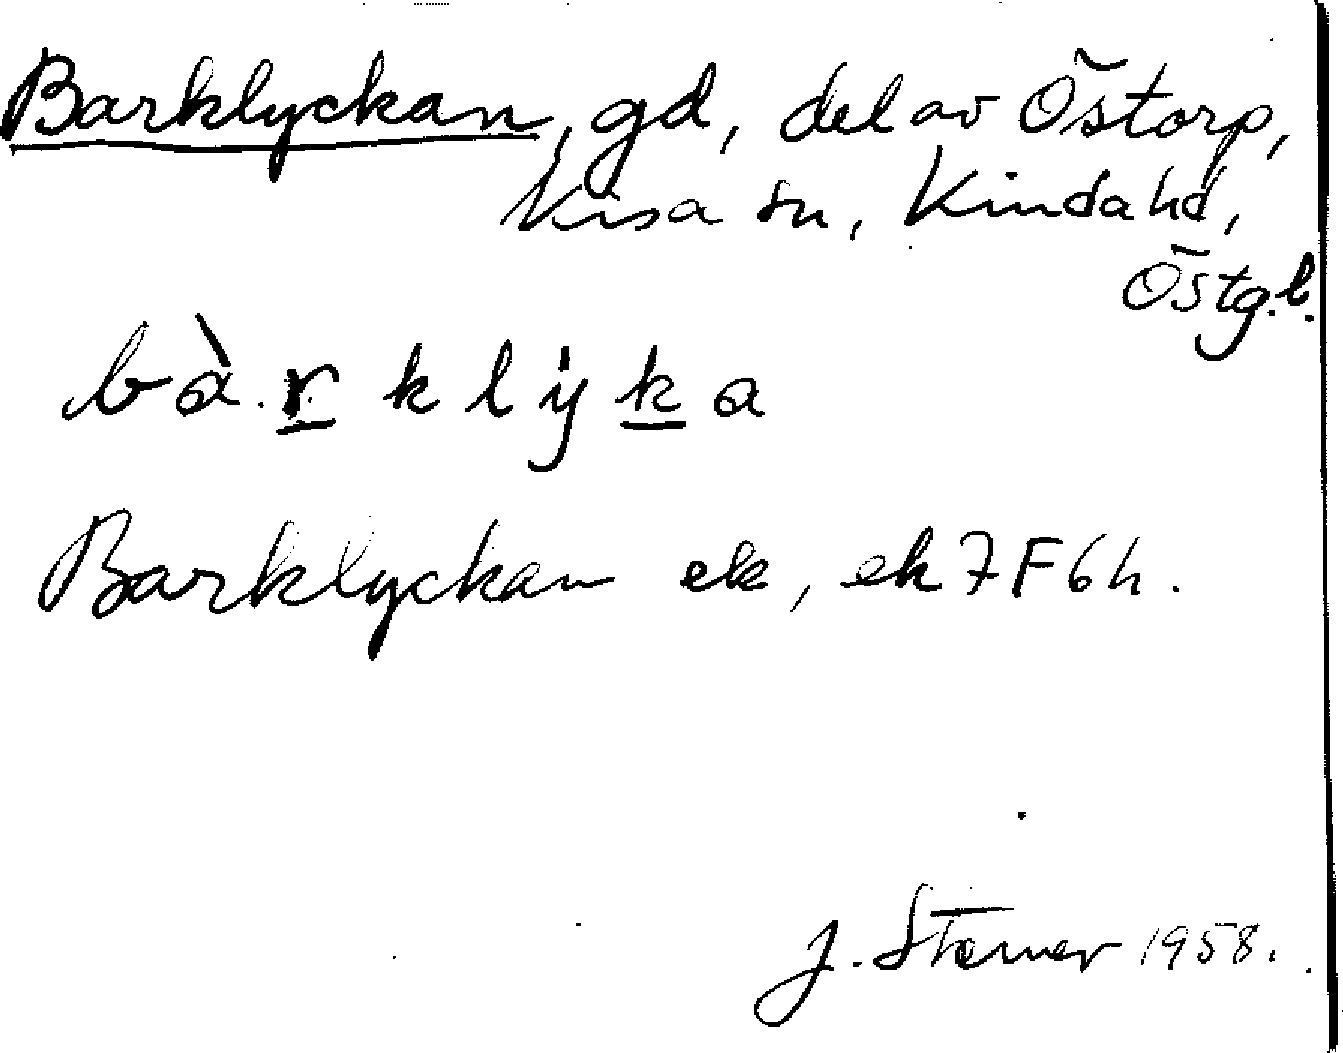 Barklyckan, gd, del av Östorp,
Kisa sn, Kinda hd,
Östg. l.
bà. r k l y k a
Barklyckan ek, ek 7F6h.
J. Stamer 1958.